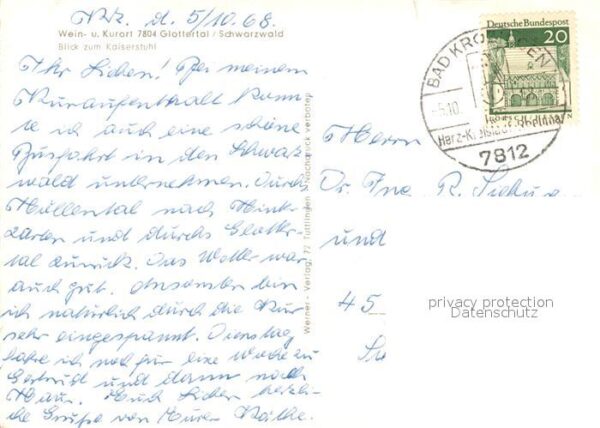 d. 5/10.68.
Wein- u. Kurort 7804 Glottertal / Schwarzwald
Blick zum Kaiserstuhl
Ihr Lieben! Bei meinem
Kuraufenthalt konn-
te ich auch eine schöne
Busfahrt in den Schwarz-
wald unternehmen. Durchs
Höllental nach Hinter-
zarten und durchs Glotter-
tal zurück. Das Wetter war
auch gut. Ansonsten bin
ich natürlich durch die Kur
sehr eingespannt. Dienstag
fahre ich noch für eine Woche zu
Gertrud und dann nach
Haus. Euch Lieben herzli-
che Grüße von Eurer Käthe.
Werner-Verlag, 72 Tuttlingen
Nachdruck verboten
Deutsche Bundespost
20
BAD KROZINGEN
-5.10.
Herz-Kreislauf-Rheuma
7812
Herrn
Dr. Ing. R.
und
45
privacy protection
Datenschutz